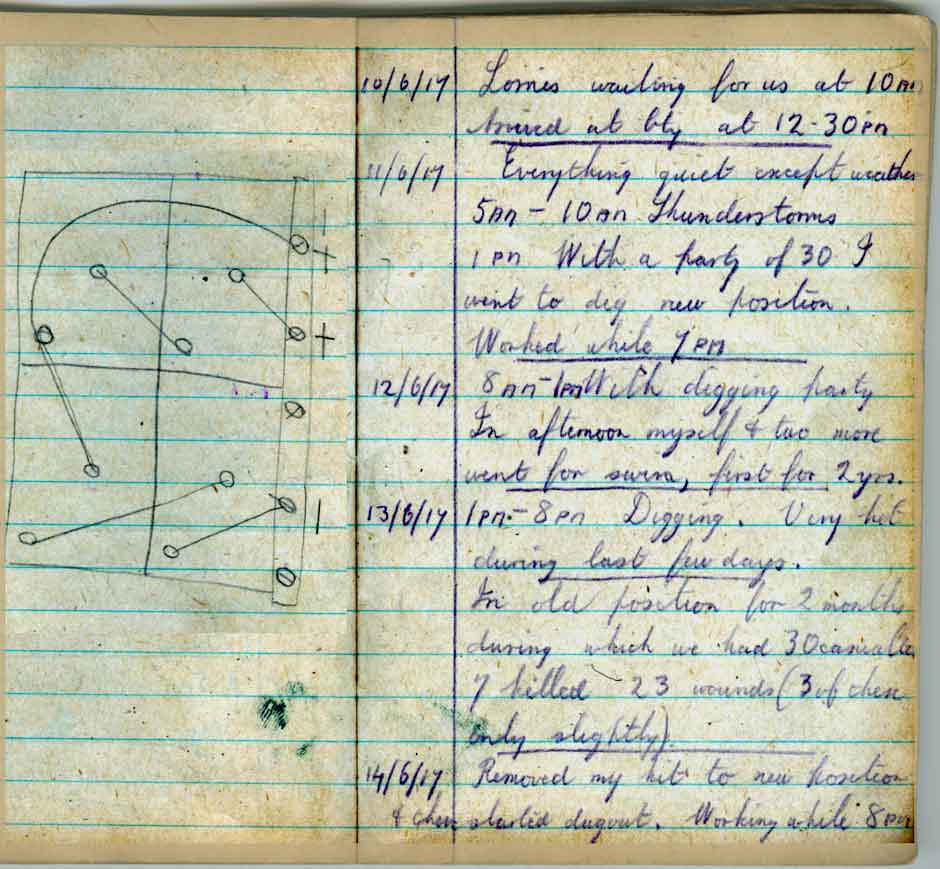 10/6/17 Lorries waiting for us at 10 AM
Arrived at bty at 12-30 PM
11/6/17 Everything quiet except weather
5 AM - 10 AM Thunderstorms
1 PM With a party of 30 I
went to dig new position.
Worked while 7 PM
12/6/17 8 AM - 1 PM With digging party
In afternoon myself & two more
went for swim, first for 2 yrs.
13/6/17 1 PM. - 8 PM Digging. Very hot
during last few days.
In old position for 2 months
during which we had 30 casualties
7 killed 23 wounds (3 of these
only slightly).
14/6/17 Removed my kit to new position
& then started dugout. Working while 8 PM
- +
+
-